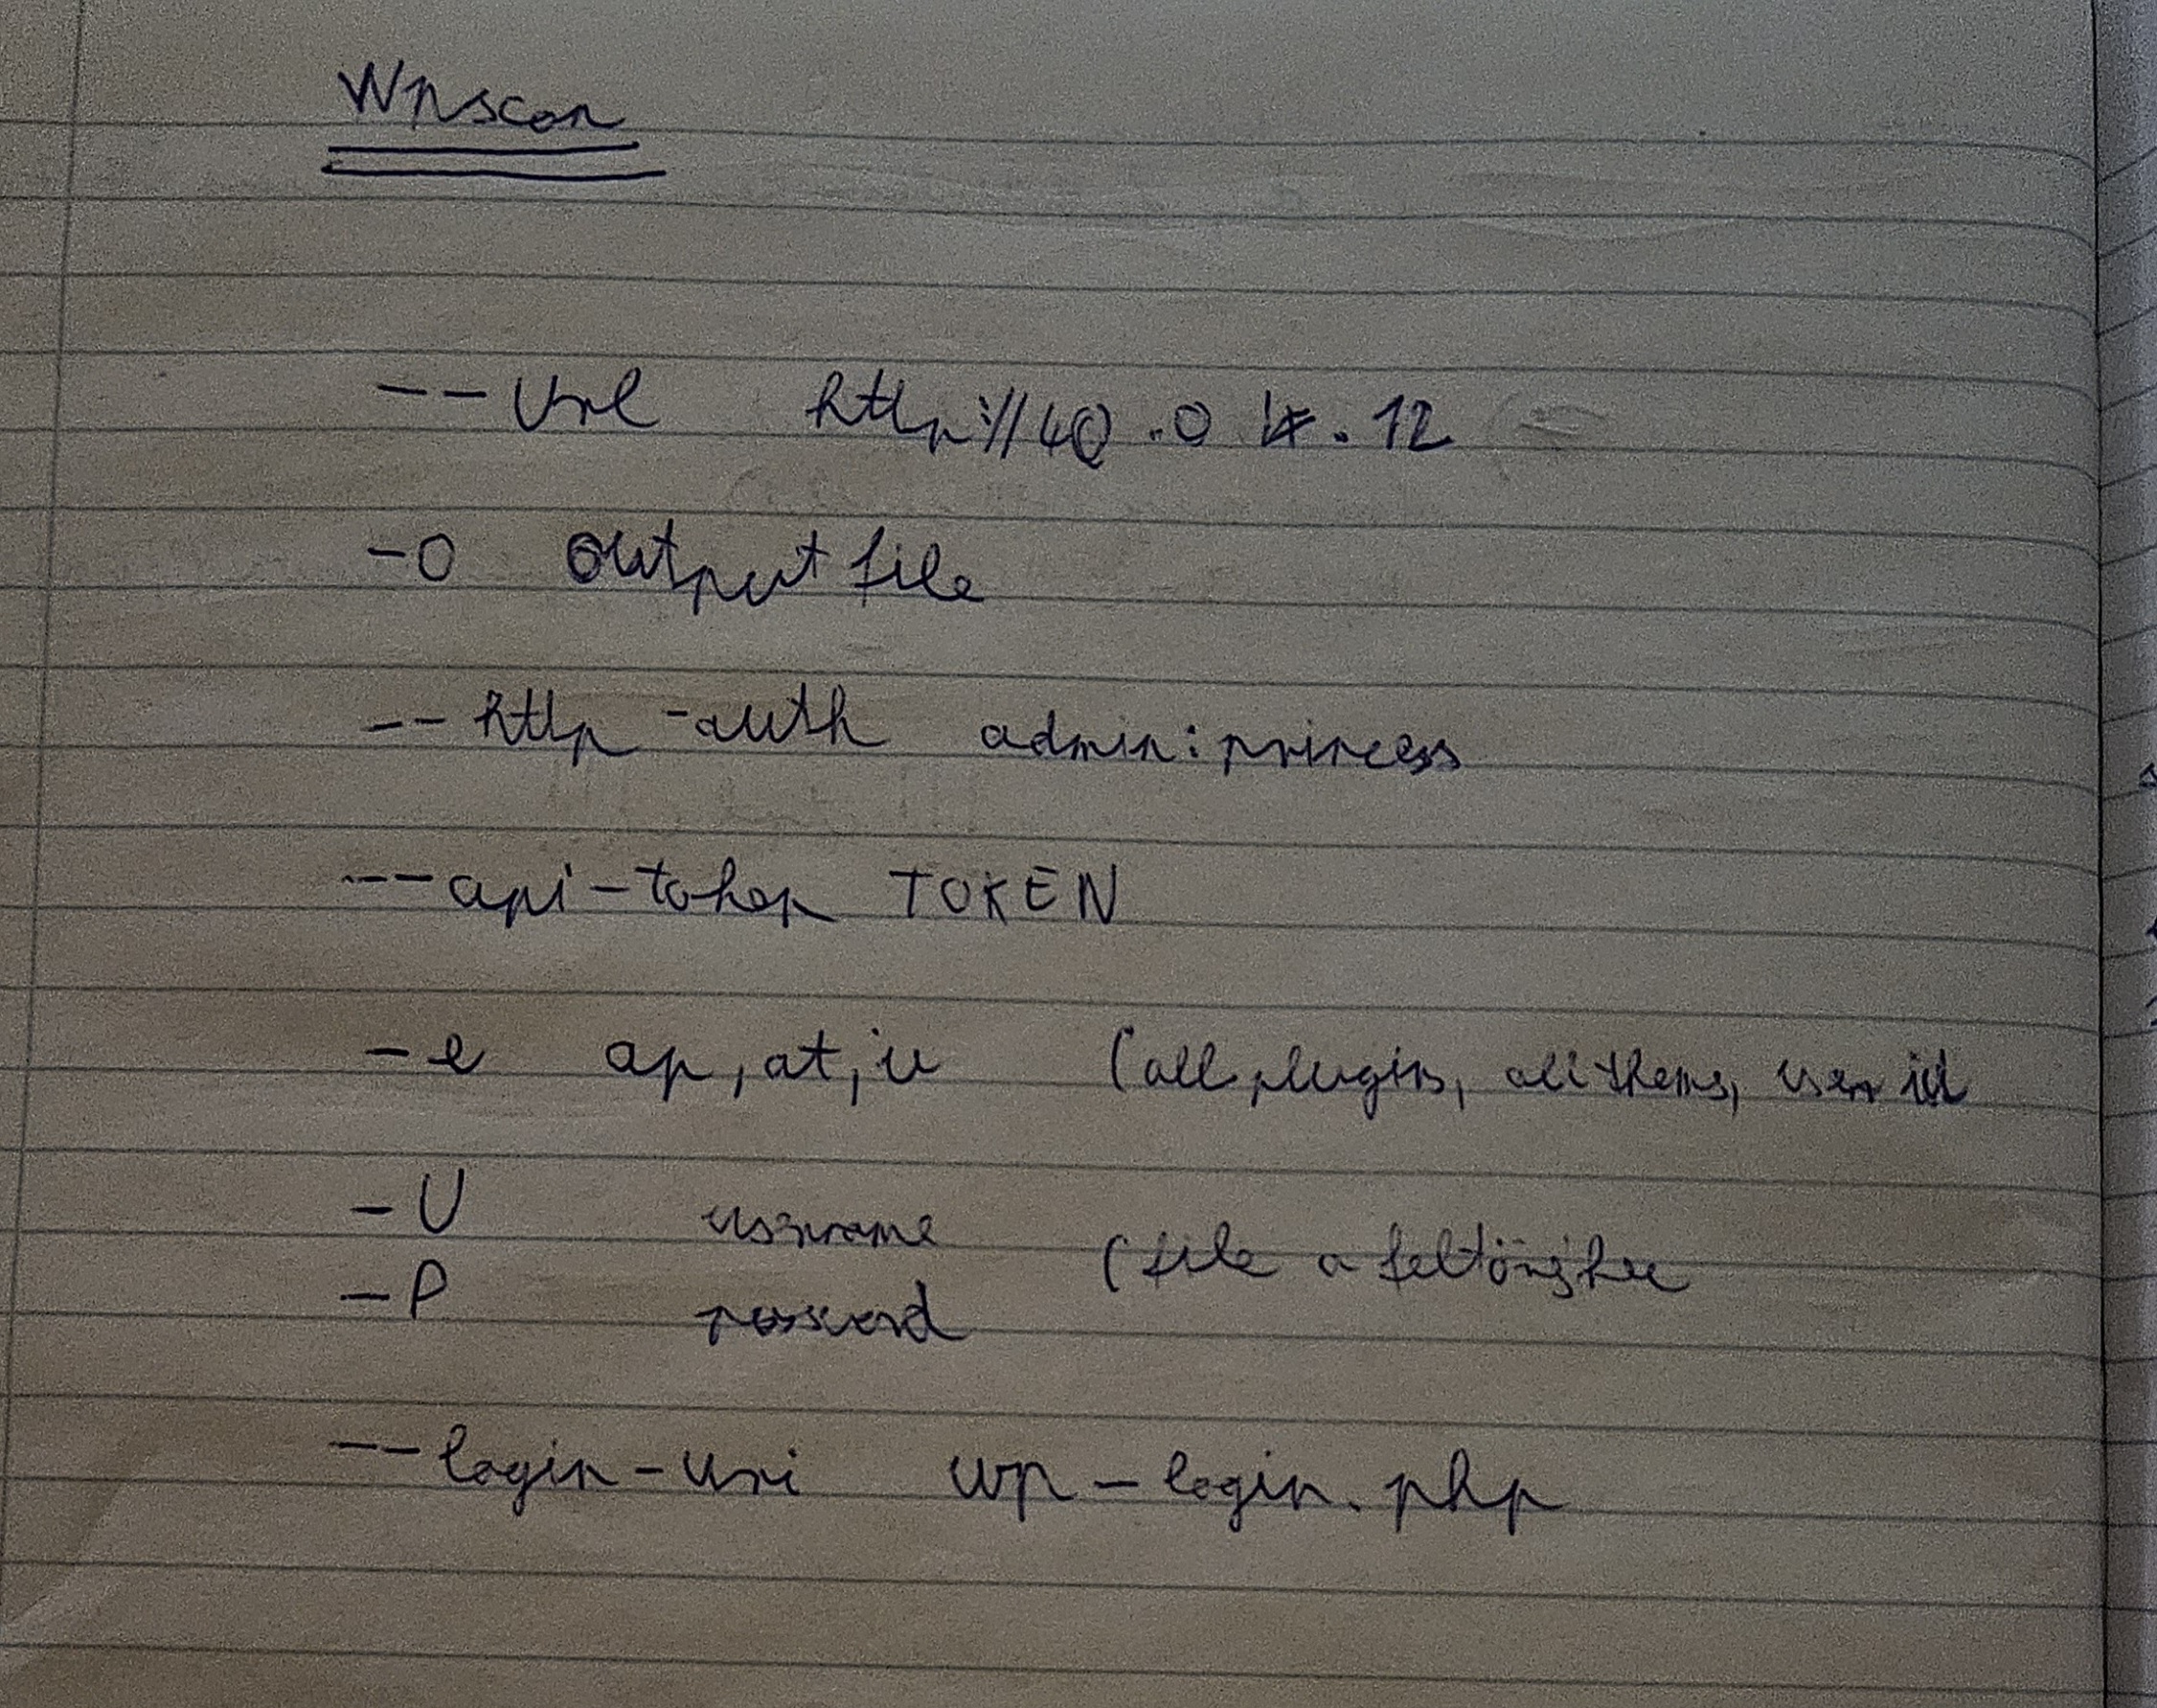 Wpscan
--url http://10.0.12
-o output file
--http-auth admin:princess
--api-token TOKEN
-e ap, at, u (all plugin, all thems, user id
-U username
(file a feltöréshez
-P password
--login-uri wp-login.php